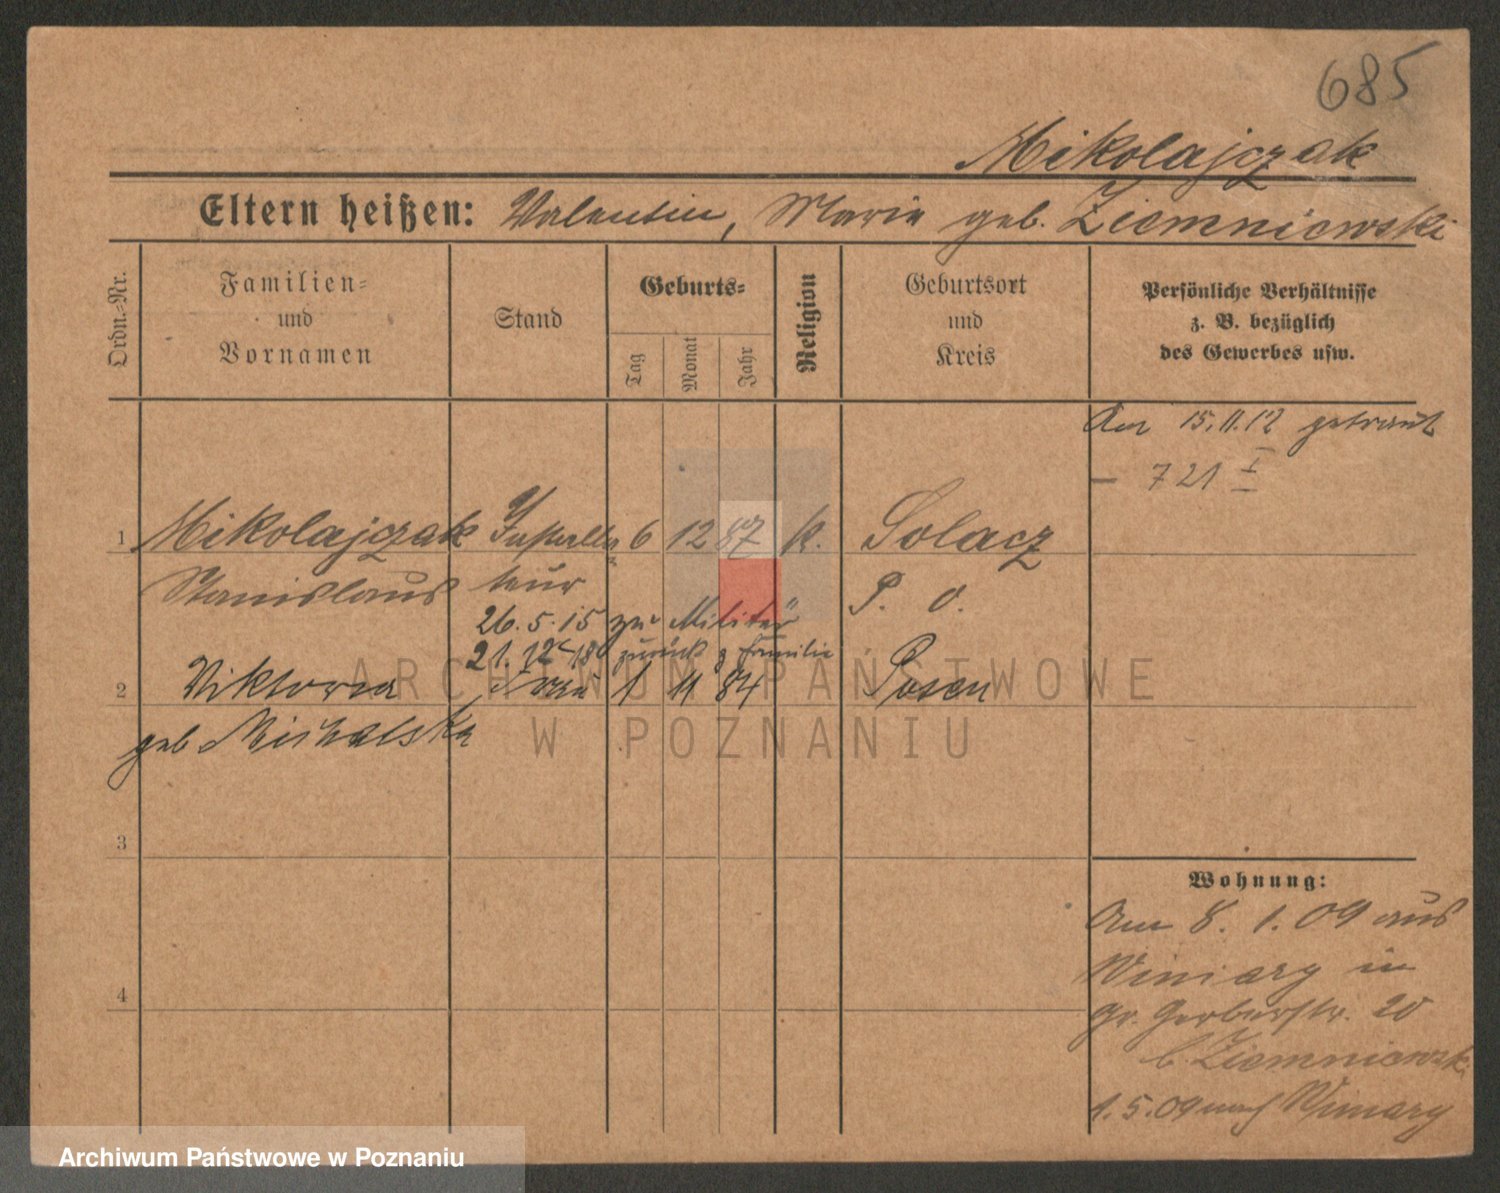 685
Mikolajczak
Eltern heißen: Valentin, Marie geb. Ziemniewski
Ordn.-Nr.
Familien-
und
Vornamen
Stand
Geburts-
Tag
Monat
Jahr
Religion
Geburtsort
und
Kreis
Persönliche Verhältnisse
z. B. bezüglich
des Gewerbes usw.
Am 15.11.12 getraut
– 721 I
1 Mikolajczak Installa 6 12 87 k. Solacz
Stanislaus teur P. O.
26.5.15 zu Militär
21.12.18 zurück z Familie
2 Viktoria Frau 1 11 84 Posen
geb Michalska
3
4
Wohnung:
Am 8. 1. 09 aus
Winiary in
Gr. Gerberstr. 20
b. Ziemniewsk
1.5.09 nach Winiary
ARCHIWUM PAŃSTWOWE
W POZNANIU
Archiwum Państwowe w Poznaniu